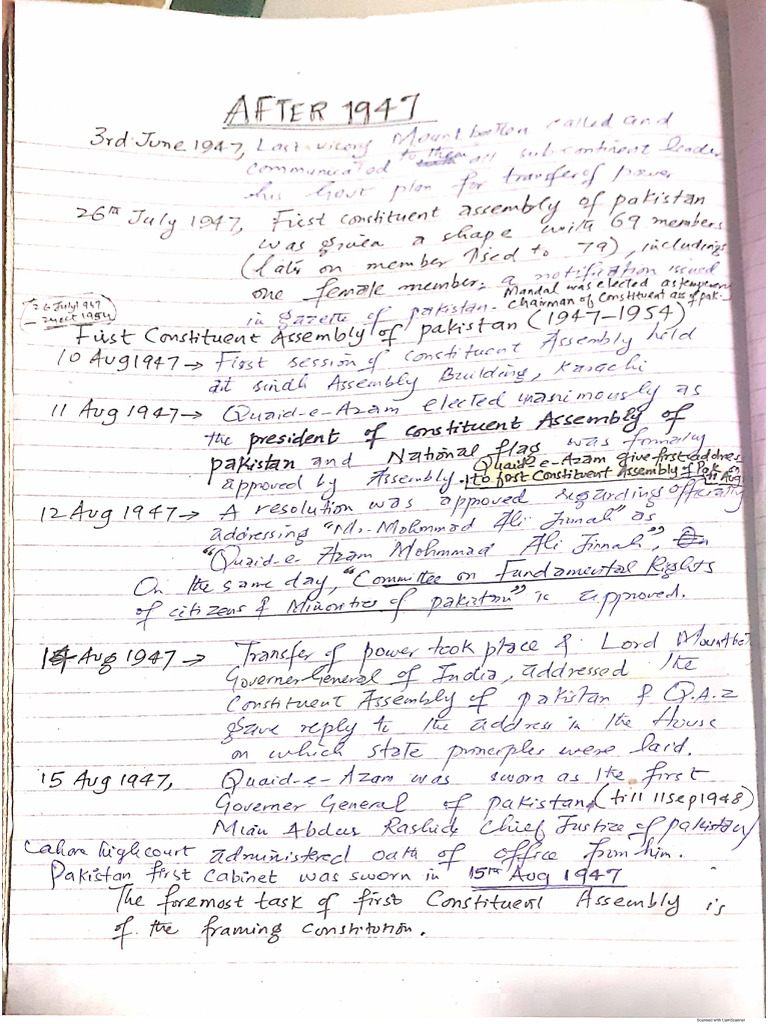 AFTER 1947
3rd June 1947, Last viceroy Mountbatten called and
communicated to all subcontinent leader
his Govt plan for transfer of power
26th July 1947, First constituent assembly of pakistan
was given a shape with 69 members
(later on member rised to 79), including
one female member. a notification issued
in gazette of pakistan. Mandal was elected as temporary
chairman of Constituent ass of pak.
(26 July 1947
First Constituent Assembly of pakistan (1947-1954)
10 Aug 1947 → First session of constituent Assembly held
at sindh Assembly Building, Karachi
11 Aug 1947 → Quaid-e-Azam elected unanimously as
the president of constituent Assembly of
pakistan and National flag was formally
approved by Assembly. Quaid-e-Azam give first address
to first Constituent Assembly of Pak on
11 Aug
12 Aug 1947 → A resolution was approved regarding officially
addressing "Mr. Mohmmad Ali Jinnah" as
"Quaid-e-Azam Mohmmad Ali Jinnah",
On the same day, "Committee on Fundamental Rights
of citizens & Minorities of pakistan" is approved.
14 Aug 1947 → Transfer of power took place & Lord Mountbat
Governer General of India, addressed the
Constituent Assembly of pakistan & Q.A.z
gave reply to the address in the House
on which state principles were laid.
15 Aug 1947, Quaid-e-Azam was sworn as the first
Governer General of pakistan (till 11 sep 1948)
Mian Abdur Rashid, Chief Justice of pakistan/
Lahore high court administered oath of office from him.
Pakistan first cabinet was sworn in 15th Aug 1947
The foremost task of first Constituent Assembly is
of the framing constitution.
Scanned with CamScanner